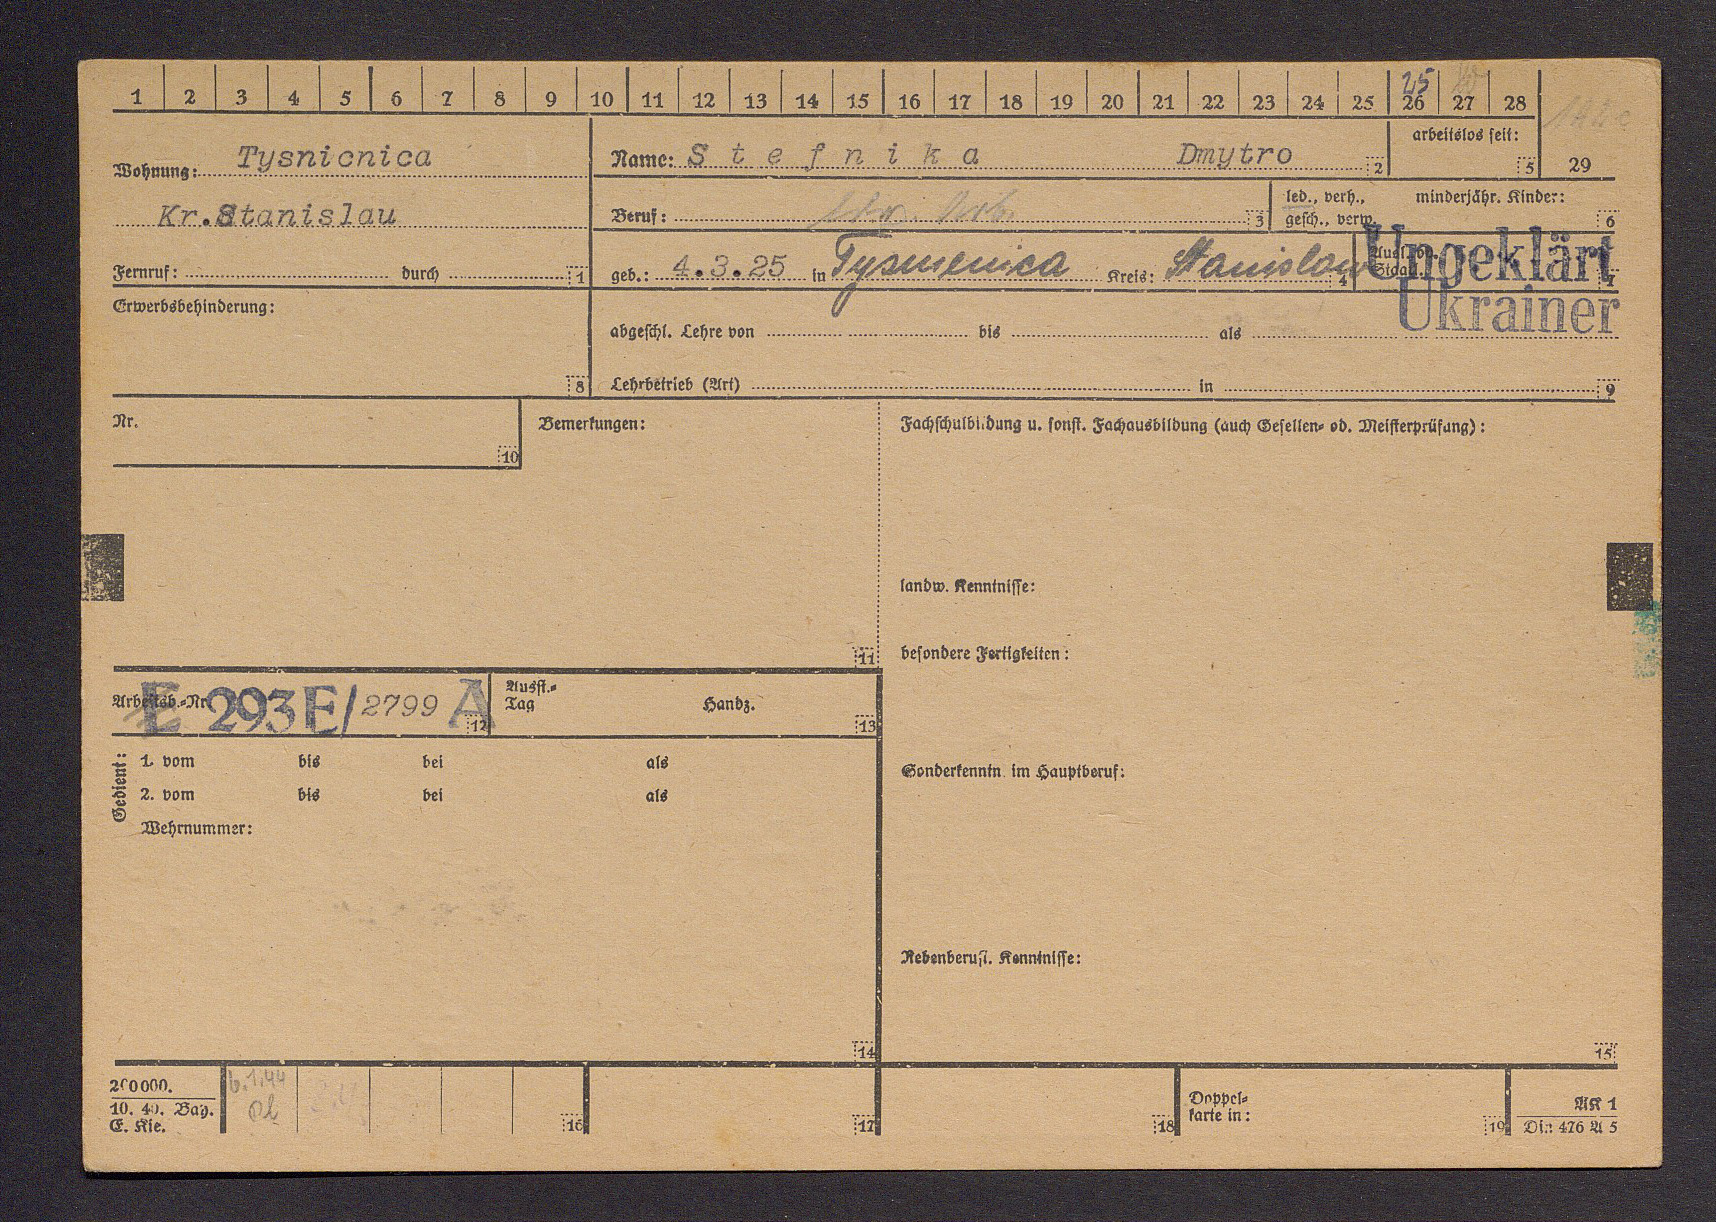 1 2 3 4 5 6 7 8 9 10 11 12 13 14 15 16 17 18 19 20 21 22 23 24 25 26 27 28
25
Wohnung: Tysnicnica
Kr. Stanislau
Fernruf: durch 1
Name: Stefnika Dmytro 2
arbeitslos seit: 5
29
Beruf: 3
led., verh., gesch., verw.
minderjähr. Kinder: 6
geb.: 4.3.25 in Tysmienica Kreis: Stanislau 4
Ungeklärt 7
Ukrainer
Erwerbsbehinderung: 8
abgeschl. Lehre von bis als
Lehrbetrieb (Art) in 9
Nr. 10
Bemerkungen: 11
Fachschulbildung u. sonst. Fachausbildung (auch Gesellen- od. Meisterprüfung):
landw. Kenntnisse:
besondere Fertigkeiten:
Arbeitsb.-Nr. E 293 E/2799 A 12
Ausst.-Tag Handz. 13
Gedient:
1. vom bis bei als
2. vom bis bei als
Wehrnummer:
14
Sonderkenntn. im Hauptberuf:
Nebenberufl. Kenntnisse:
15
200000.
10. 40. Bag.
E. Kie.
6.1.44
16
17
18
Doppel-
karte in: 19
AK 1
Din 476 A 5